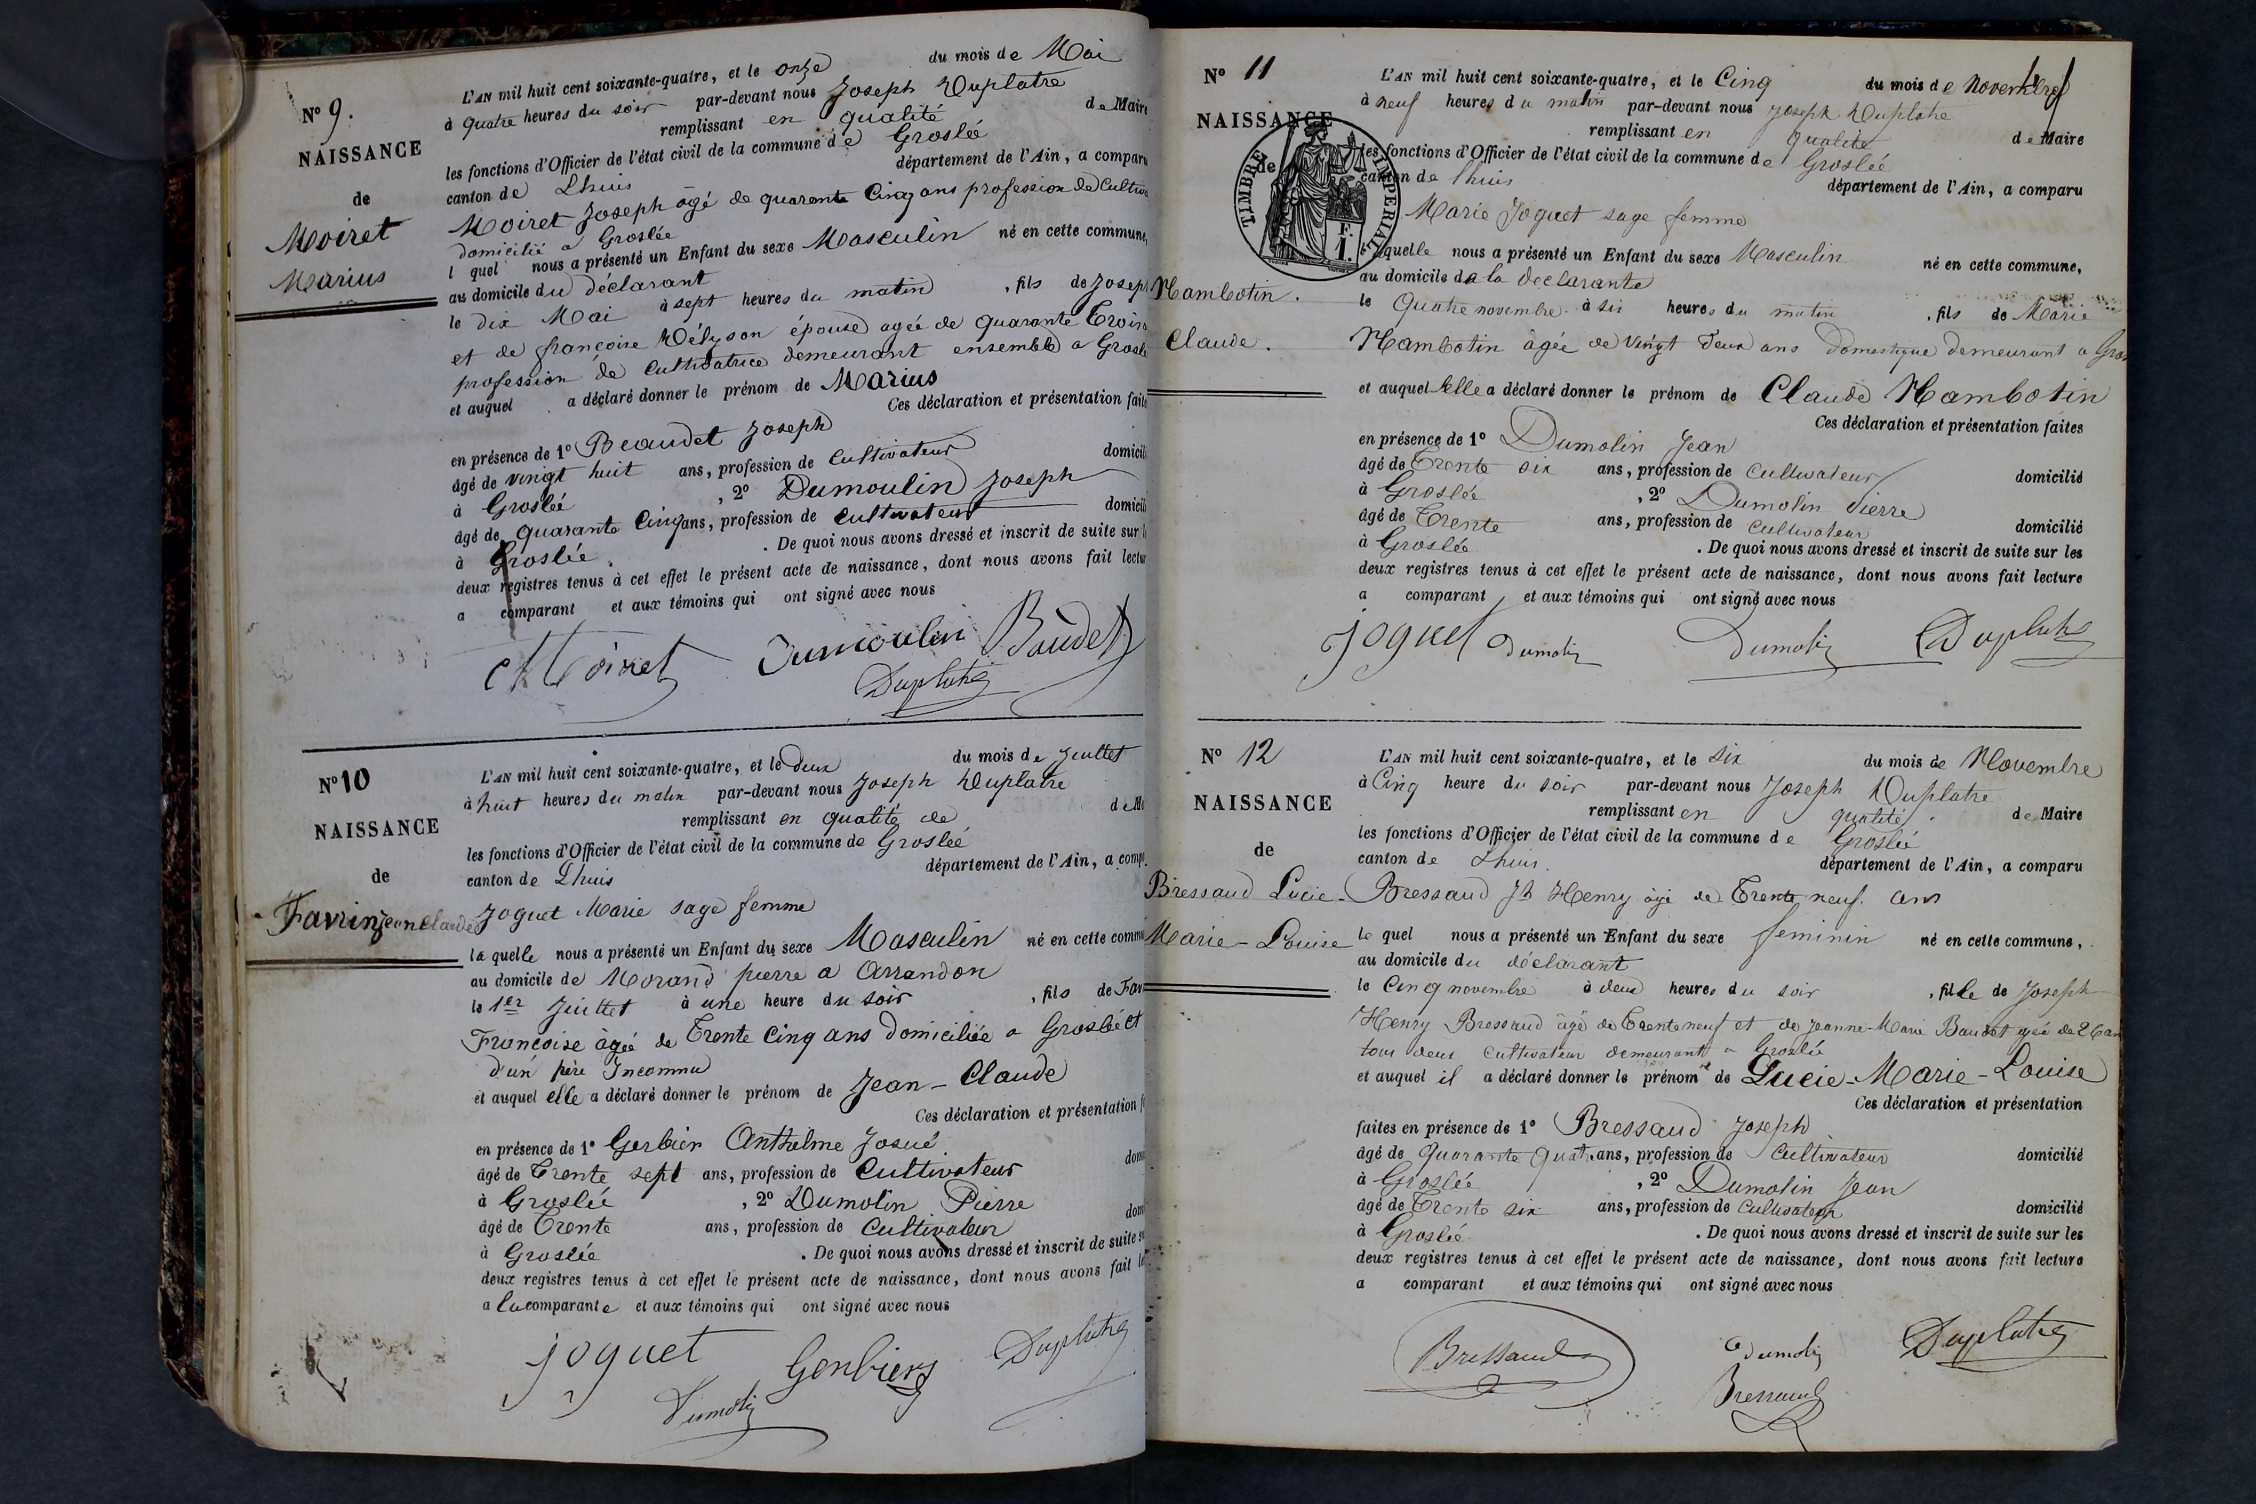 N° 9.
NAISSANCE
de
Moiret
Marius
L'AN mil huit cent soixante-quatre, et le onze du mois de Mai
à quatre heures du soir par-devant nous Joseph Duplatre
remplissant en qualité de Maire
les fonctions d'Officier de l'état civil de la commune de Groslée
canton de Lhuis département de l'Ain, a comparu
Moiret Joseph âgé de quarente Cinq ans profession de Cultiva
domicilié a Groslée
l quel nous a présenté un Enfant du sexe Masculin né en cette commune,
au domicile du déclarant
le dix Mai à sept heures du matin, fils de Joseph
et de françoise épouse agée de quarante Trois
profession de Cultivatrice demeurant ensemble a Groslé
et auquel a déclaré donner le prénom de Marius
Ces déclaration et présentation faite
en présence de 1° Beaudet Joseph
âgé de vingt huit ans, profession de Cultivateur domicili
à Groslée, 2° Dumoulin Joseph
âgé de quarante Cinq ans, profession de Cultivateur domicili
à Groslée. De quoi nous avons dressé et inscrit de suite sur l
deux registres tenus à cet effet le présent acte de naissance, dont nous avons fait lectur
a comparant et aux témoins qui ont signé avec nous
Moiret Dumoulin Baudet
Duplatre
N° 10
NAISSANCE
de
Favrin Jean Claude
L'AN mil huit cent soixante-quatre, et le deux du mois de Juillet
à huit heures du matin par-devant nous Joseph Duplatre
remplissant en qualité de de Ma
les fonctions d'Officier de l'état civil de la commune de Groslée
canton de Lhuis département de l'Ain, a comp
Joguet Marie sage femme
la quelle nous a présenté un Enfant du sexe Masculin né en cette commu
au domicile de Morand pierre a Arrandon
le 1er Juillet à une heure du soir, fils de Fav
Françoise âgée de Trente Cinq ans domiciliée a Groslée et
d'un père Inconnu
et auquel elle a déclaré donner le prénom de Jean-Claude
Ces déclaration et présentation f
en présence de 1° Gerbier Anthelme Josué
âgé de Trente sept ans, profession de Cultivateur dom
à Groslée, 2° Dumolin Pierre
âgé de Trente ans, profession de Cultivateur dom
à Groslée. De quoi nous avons dressé et inscrit de suite s
deux registres tenus à cet effet le présent acte de naissance, dont nous avons fait le
a la comparante et aux témoins qui ont signé avec nous
joguet Gerbier Duplatre
Dumolin
N° 11
NAISSANCE
de
TIMBRE IMPERIAL
F.
1.
Mambotin.
Claude.
L'AN mil huit cent soixante-quatre, et le Cinq du mois de Novembre
à neuf heures du matin par-devant nous Joseph Duplatre
remplissant en qualité de Maire
les fonctions d'Officier de l'état civil de la commune de Groslée
canton de lhuis département de l'Ain, a comparu
Marie Joguet sage femme
laquelle nous a présenté un Enfant du sexe Masculin né en cette commune,
au domicile de la declarante
le Quatre novembre à six heures du matin, fils de Marie
Mambotin âgée de vingt deux ans domestique demeurant a Gros
et auquel Elle a déclaré donner le prénom de Claude Mambotin
Ces déclaration et présentation faites
en présence de 1° Dumolin Jean
âgé de Trente six ans, profession de Cultivateur domicilié
à Groslée, 2° Dumolin Pierre
âgé de Trente ans, profession de Cultivateur domicilié
à Groslée. De quoi nous avons dressé et inscrit de suite sur les
deux registres tenus à cet effet le présent acte de naissance, dont nous avons fait lecture
a comparant et aux témoins qui ont signé avec nous
joguet Dumolin Dumolin Duplatre
N° 12
NAISSANCE
de
Bressaud Lucie-
Marie-Louise
L'AN mil huit cent soixante-quatre, et le six du mois de Novembre
à Cinq heure du soir par-devant nous Joseph Duplatre
remplissant en qualité de Maire
les fonctions d'Officier de l'état civil de la commune de Groslée
canton de Lhuis département de l'Ain, a comparu
Bressaud Jh Henry âgé de Trente neuf ans
le quel nous a présenté un Enfant du sexe feminin né en cette commune,
au domicile du déclarant
le Cinq novembre à deux heures du soir, fille de Joseph
Henry Bressaud âgé de Trente neuf et de Jeanne-Marie Baudet agée de 26 an
tous deux Cultivateur demeurant a Groslée
et auquel il a déclaré donner le prénom de Lucie-Marie-Louise
Ces déclaration et présentation
faites en présence de 1° Bressaud Joseph
âgé de Quarante Quatre ans, profession de Cultivateur domicilié
à Groslée, 2° Dumolin Jean
âgé de Trente six ans, profession de Cultivateur domicilié
à Groslée. De quoi nous avons dressé et inscrit de suite sur les
deux registres tenus à cet effet le présent acte de naissance, dont nous avons fait lecture
a comparant et aux témoins qui ont signé avec nous
Bressaud Dumolin Duplatre
Bressaud